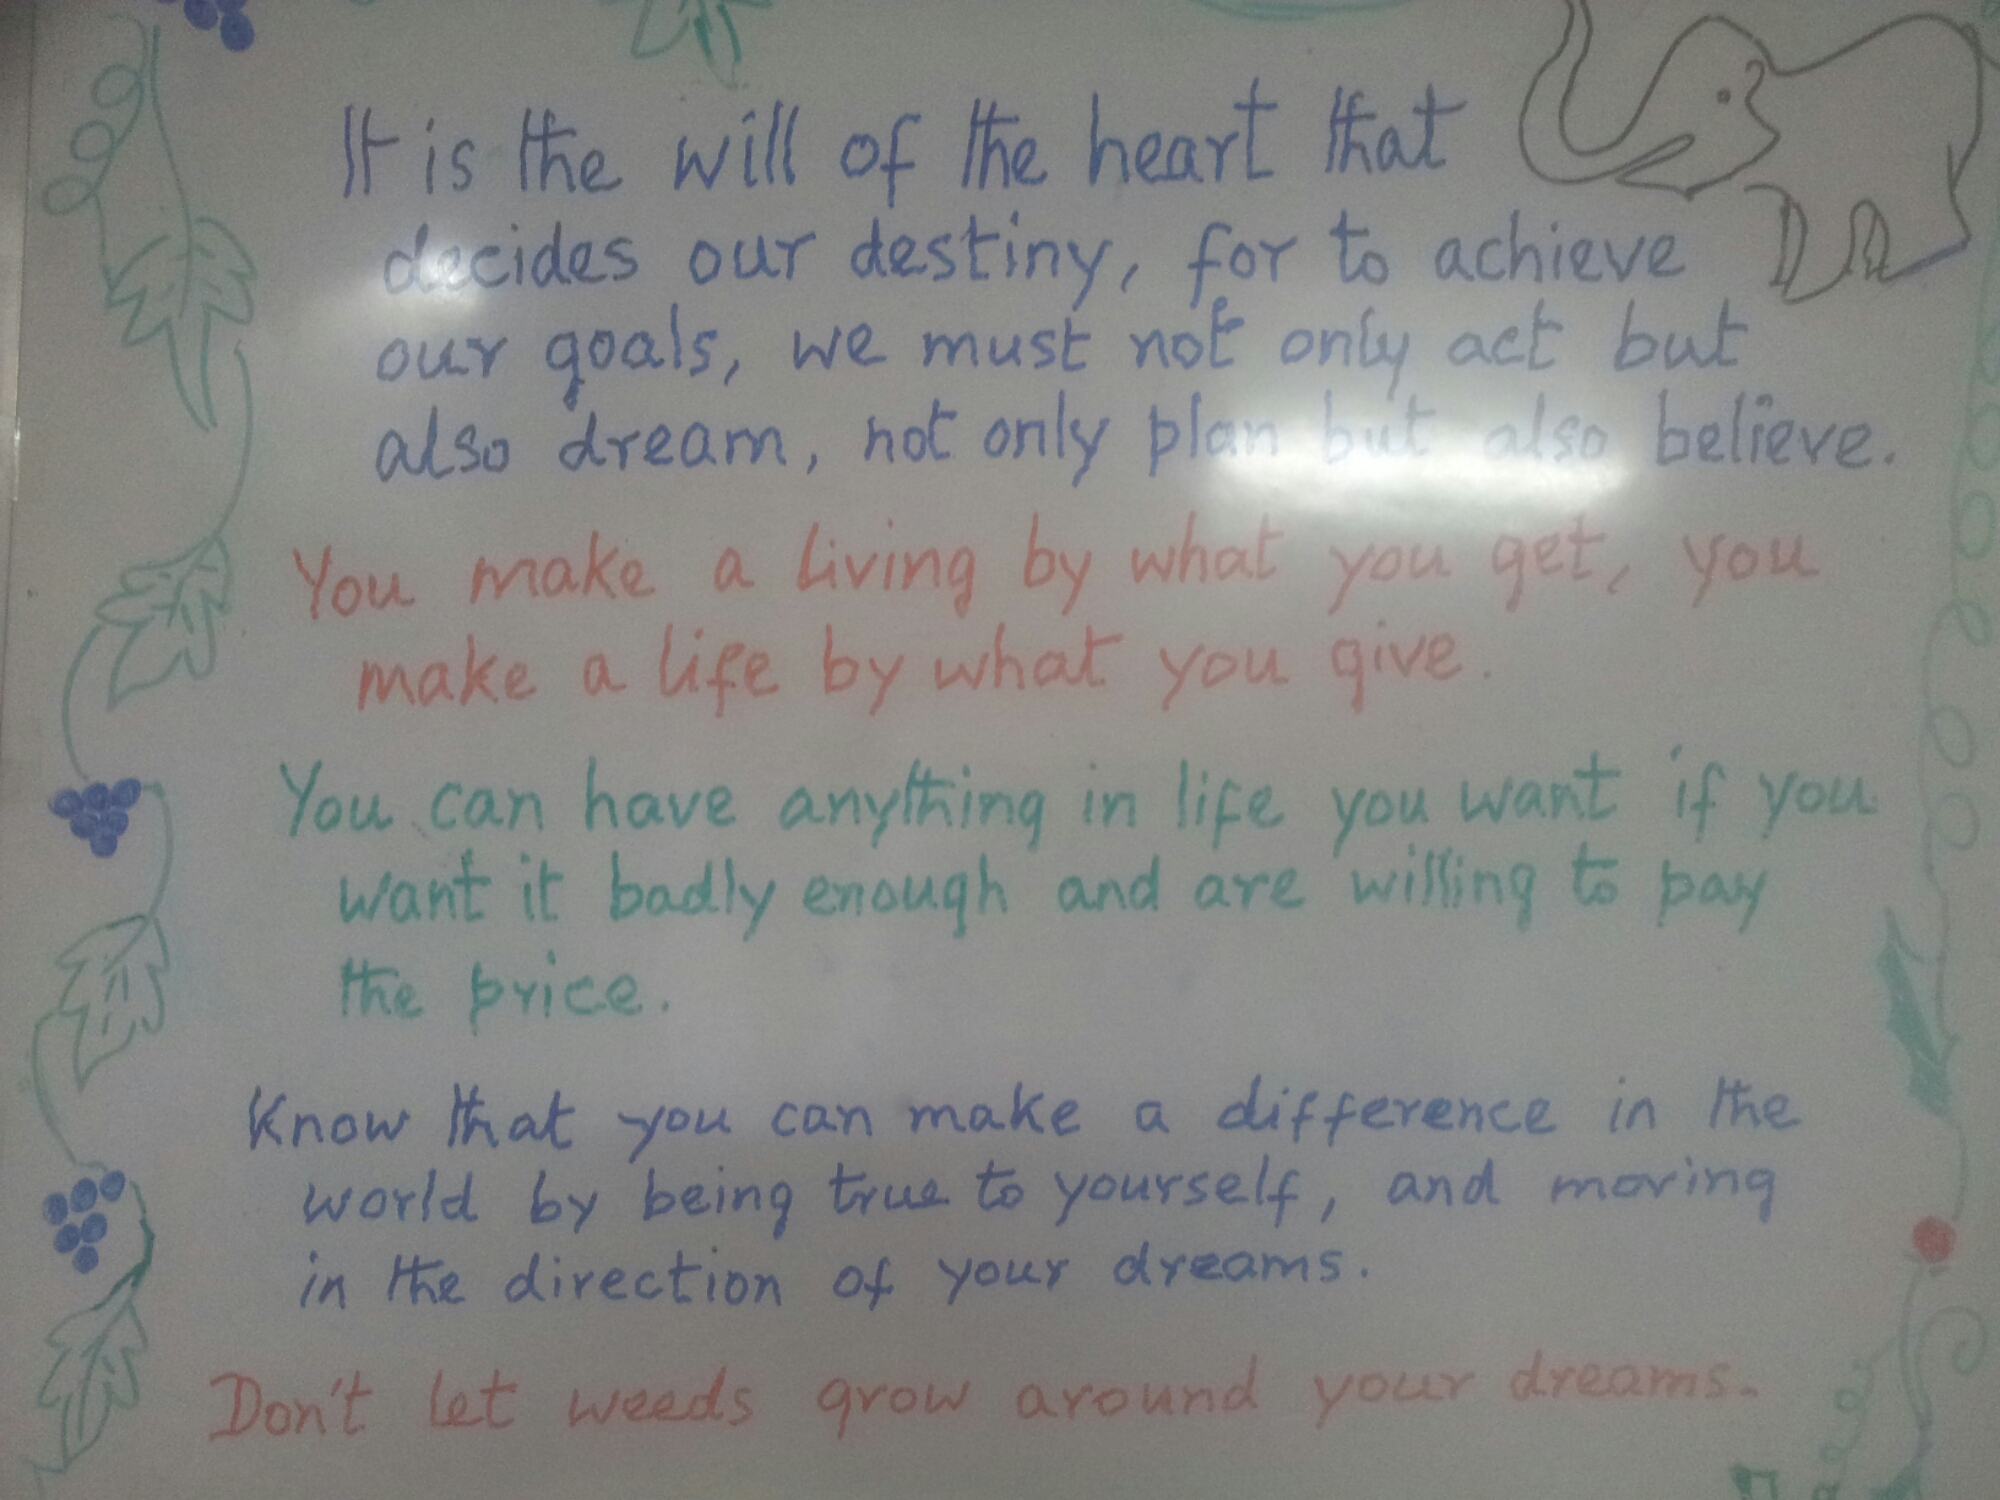 It is the will of the heart that
decides our destiny, for to achieve
our goals, we must not only act but
also dream, not only plan but also believe.
You make a living by what you get, you
make a life by what you give.
You can have anything in life you want if you
want it badly enough and are willing to pay
the price.
Know that you can make a difference in the
world by being true to yourself, and moving
in the direction of your dreams.
Don't let weeds grow around your dreams.